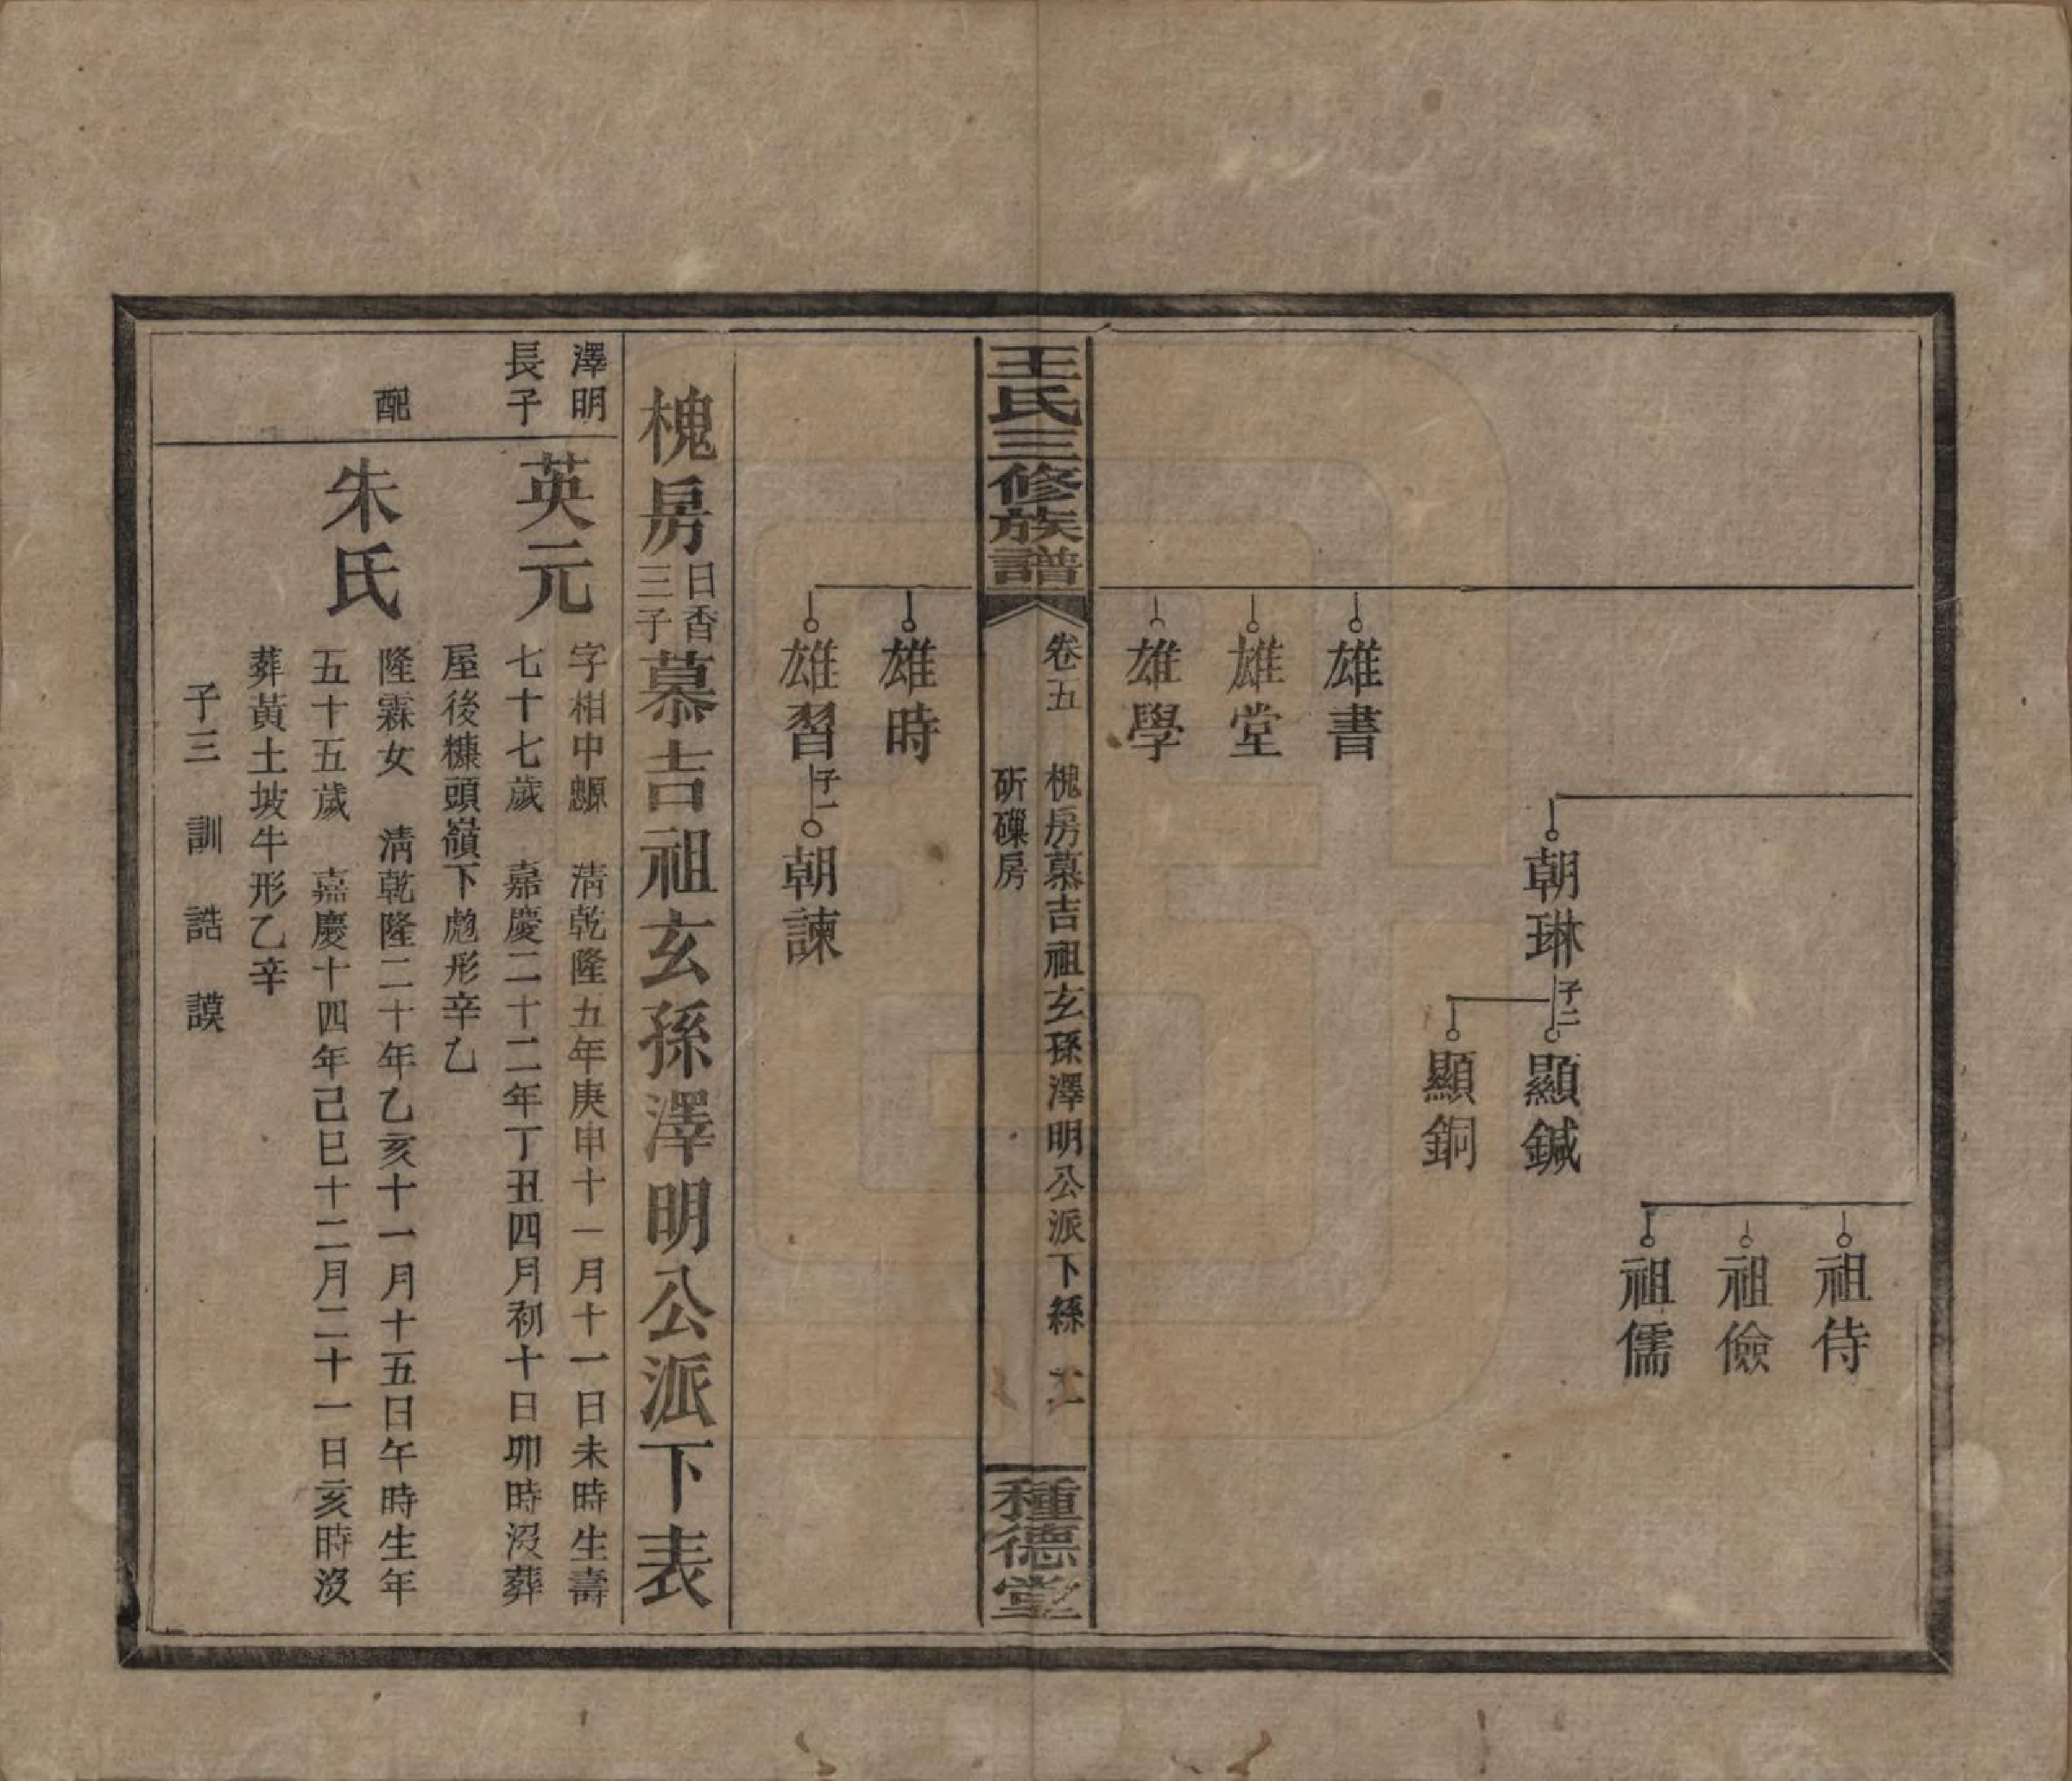 祖侍
祖儉
祖儒
朝琳
子二
顯鍼
顯銅
雄書
雄堂
雄學
王氏三修族譜
卷五 槐房慕吉祖玄孫澤明公派下系
斫磲房
種德堂
雄時
雄習
子一
朝諫
槐房日香三子慕吉祖玄孫澤明公派下表
澤明
長子
英元
字相中 清乾隆五年庚申十一月十一日未時生壽
七十七歲 嘉慶二十二年丁丑四月初十日卯時沒葬
屋後糠頭嶺下彪形辛乙
配
朱氏
隆霖女 清乾隆二十年乙亥十一月十五日午時生年
五十五歲 嘉慶十四年己巳十二月二十一日亥時沒
葬黃土坡牛形乙辛
子三 訓 誥 謨